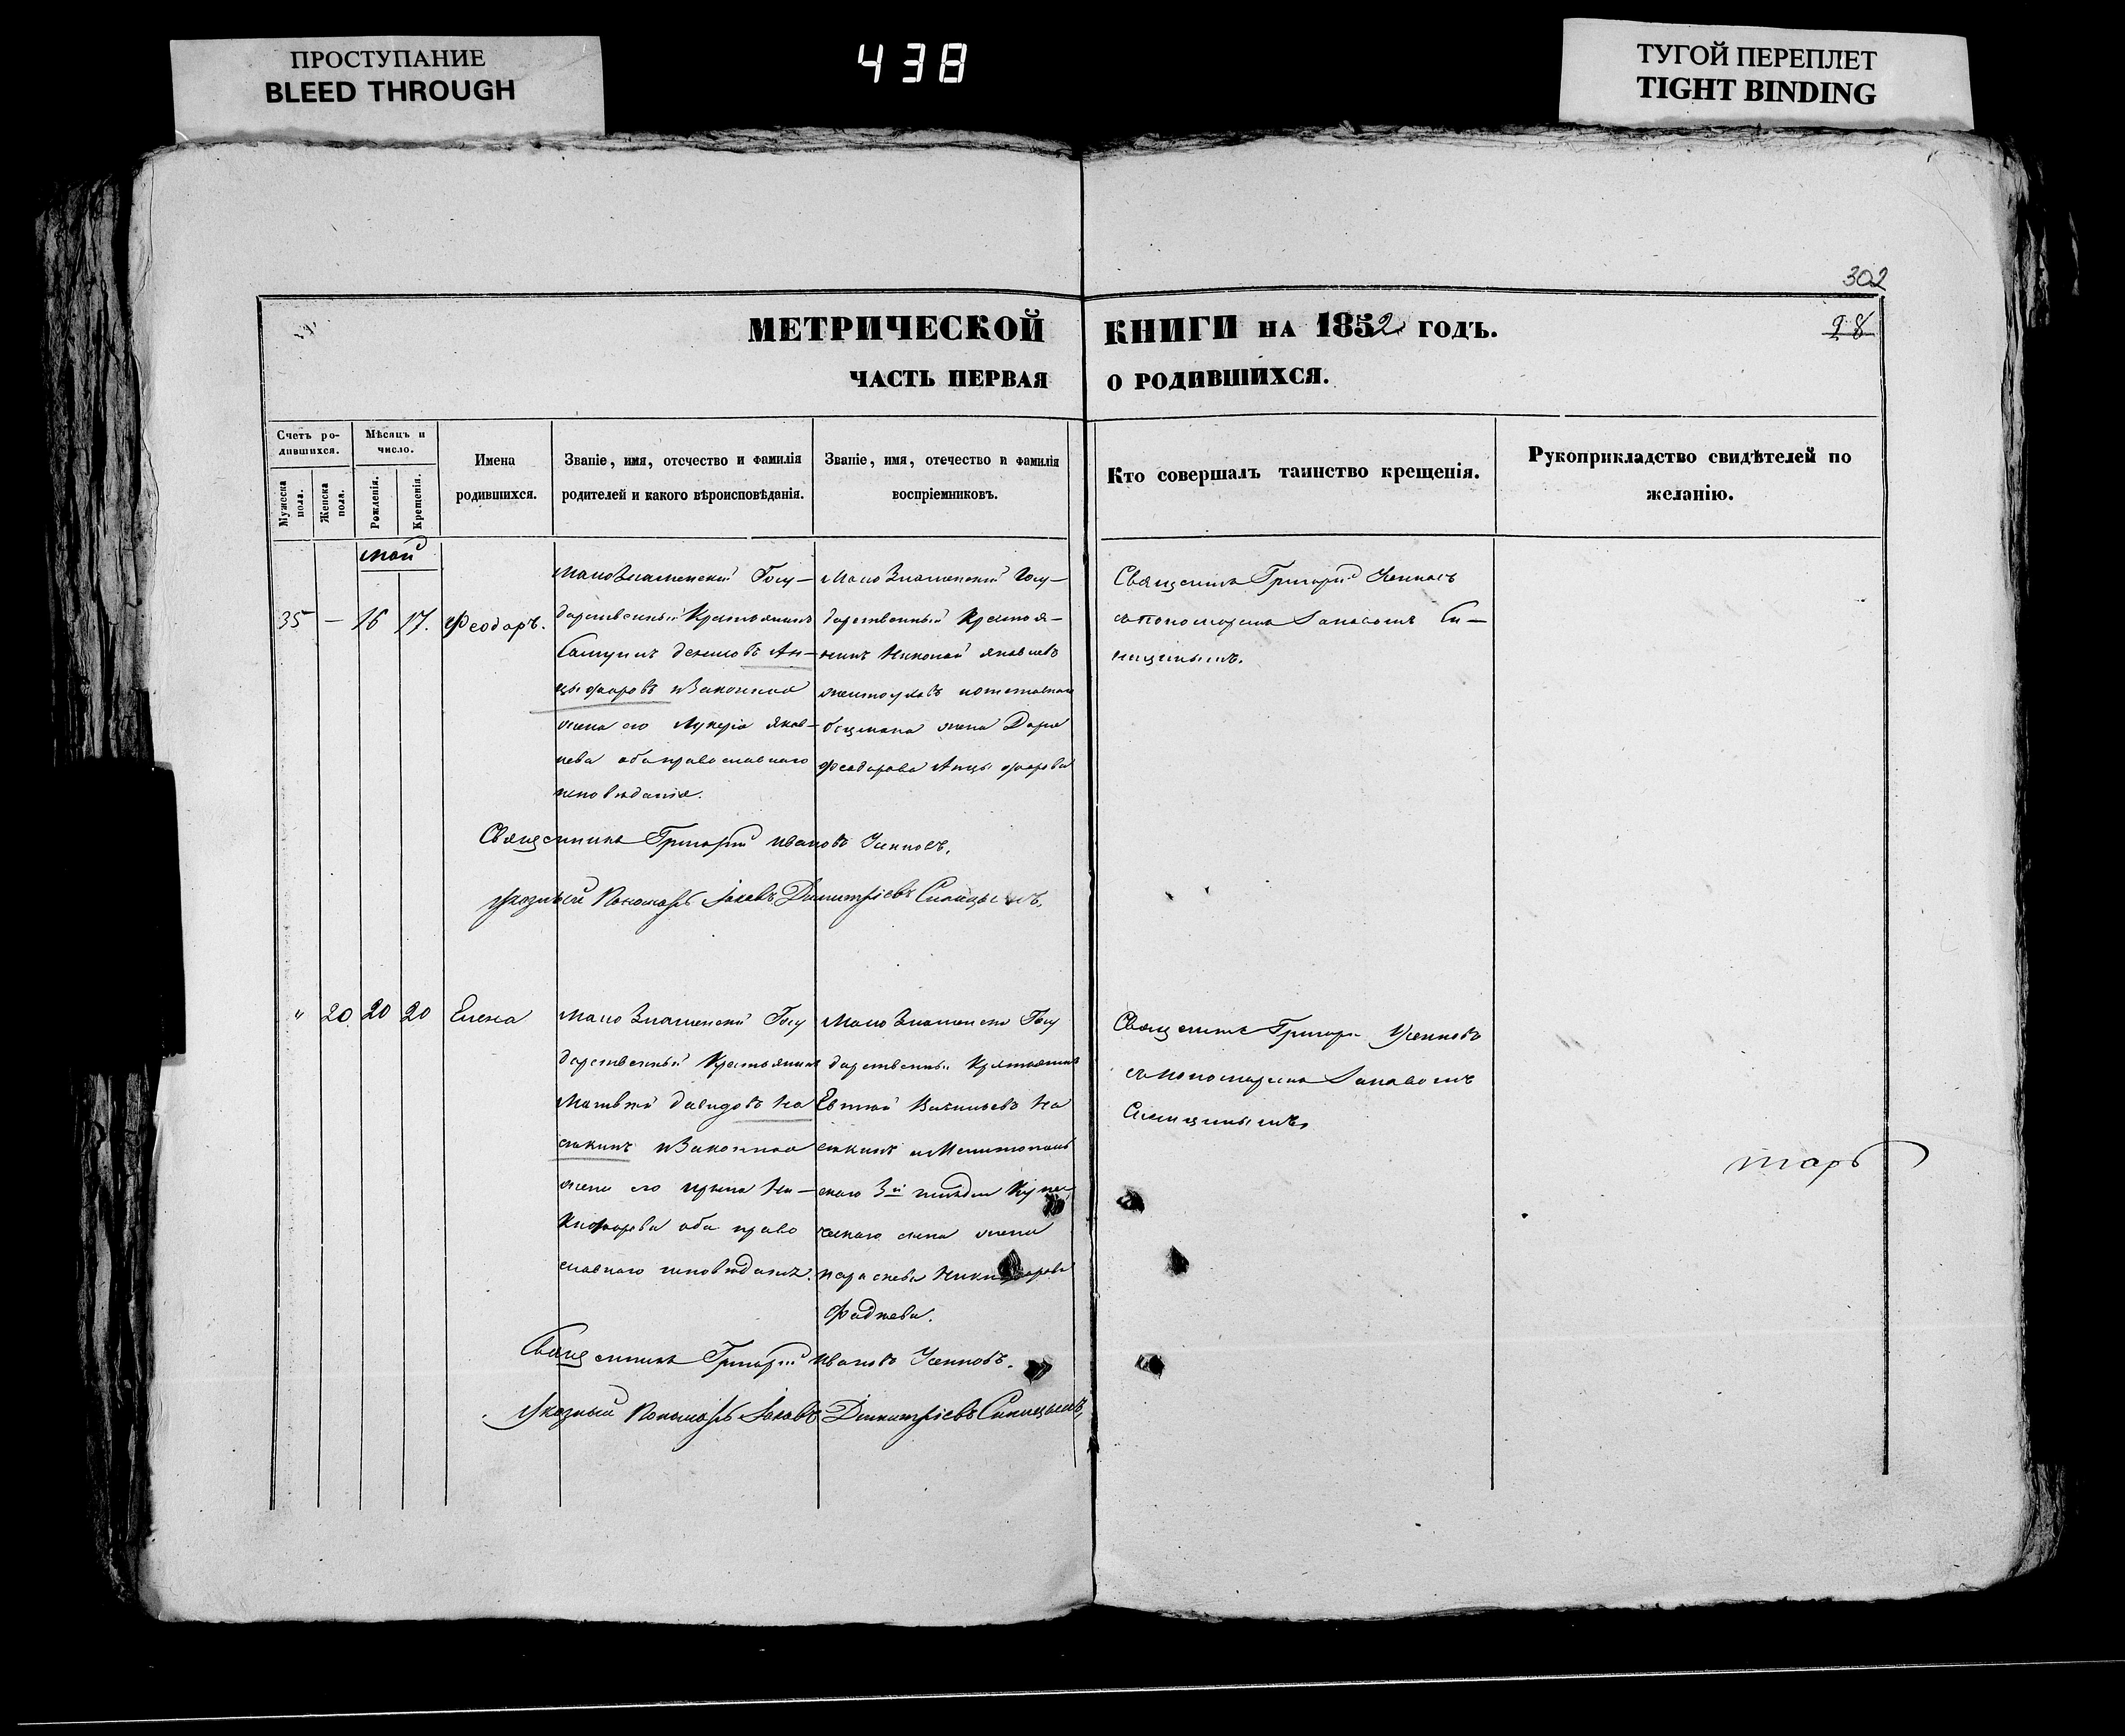 ПРОСТУПАНИЕ
BLEED THROUGH
438
ТУГОЙ ПЕРЕПЛЕТ
TIGHT BINDING
302
МЕТРИЧЕСКОЙ КНИГИ НА 1852 ГОДЪ.
98
ЧАСТЬ ПЕРВАЯ О РОДИВШИХСЯ.
Счетъ ро-
дившихся.
Мужеска пола.
Женска пола.
Мѣсяцъ и
число.
Рожденія.
Крещенія.
Имена
родившихся.
Званіе, имя, отечество и фамилія
родителей и какого вѣроисповѣданія.
Званіе, имя, отечество и фамилія
воспріемниковъ.
Кто совершалъ таинство крещенія.
Рукоприкладство свидѣтелей по
желанію.
май
35 — 16 17. Феодоръ.
МалоЗнаменскій Госу-
дарственный Крестьянинъ
Самуилъ Ан-
цыфоровъ и Законная
жена его Лукерія Яков-
лева оба православнаго
исповѣданія.
Мало Знаменскій Госу-
дарственный Крестья-
нинъ Николай Яковлевъ
жена Дарья
Феодорова Анцыфорова
Священникъ Григорій
съ пономаремъ Іаковомъ Си-
ницынымъ.
Священникъ Григорій Ивановъ
Указный Пономарь Іаковъ Димитріевъ Синицынъ.
" 20. 20 20 Елена
Мало Знаменскій Госу
дарственный Крестьянинъ
Матвѣй Давидовъ На
сѣкинъ и Законная
жена его Ирина Ни-
кифорова оба право
славнаго исповѣданія.
Мало Знаменскій Госу
дарственный Крестьянинъ
Васильевъ На
сѣкинъ и Мелитополь
скаго 3й гильдіи Купе
ческаго сына жена
Параскева Никифорова
Фадѣева.
Священникъ Григорій
съ пономаремъ Іаковомъ
Синицынымъ.
тарь
Священникъ Григорій Ивановъ
Указный Пономарь Іаковъ Димитріевъ Синицынъ.